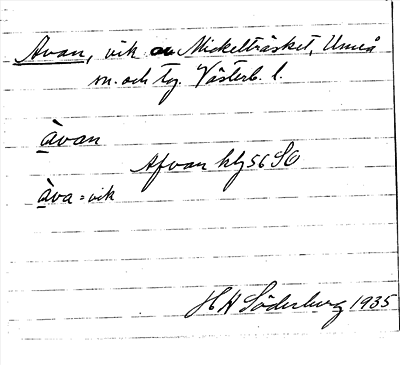 Avan, vik av Mickelträsket, Umeå
sn. och tg. Västerb. l.
àvan
Afvan hly 56 SO
àva = vik
H H Söderberg 1935